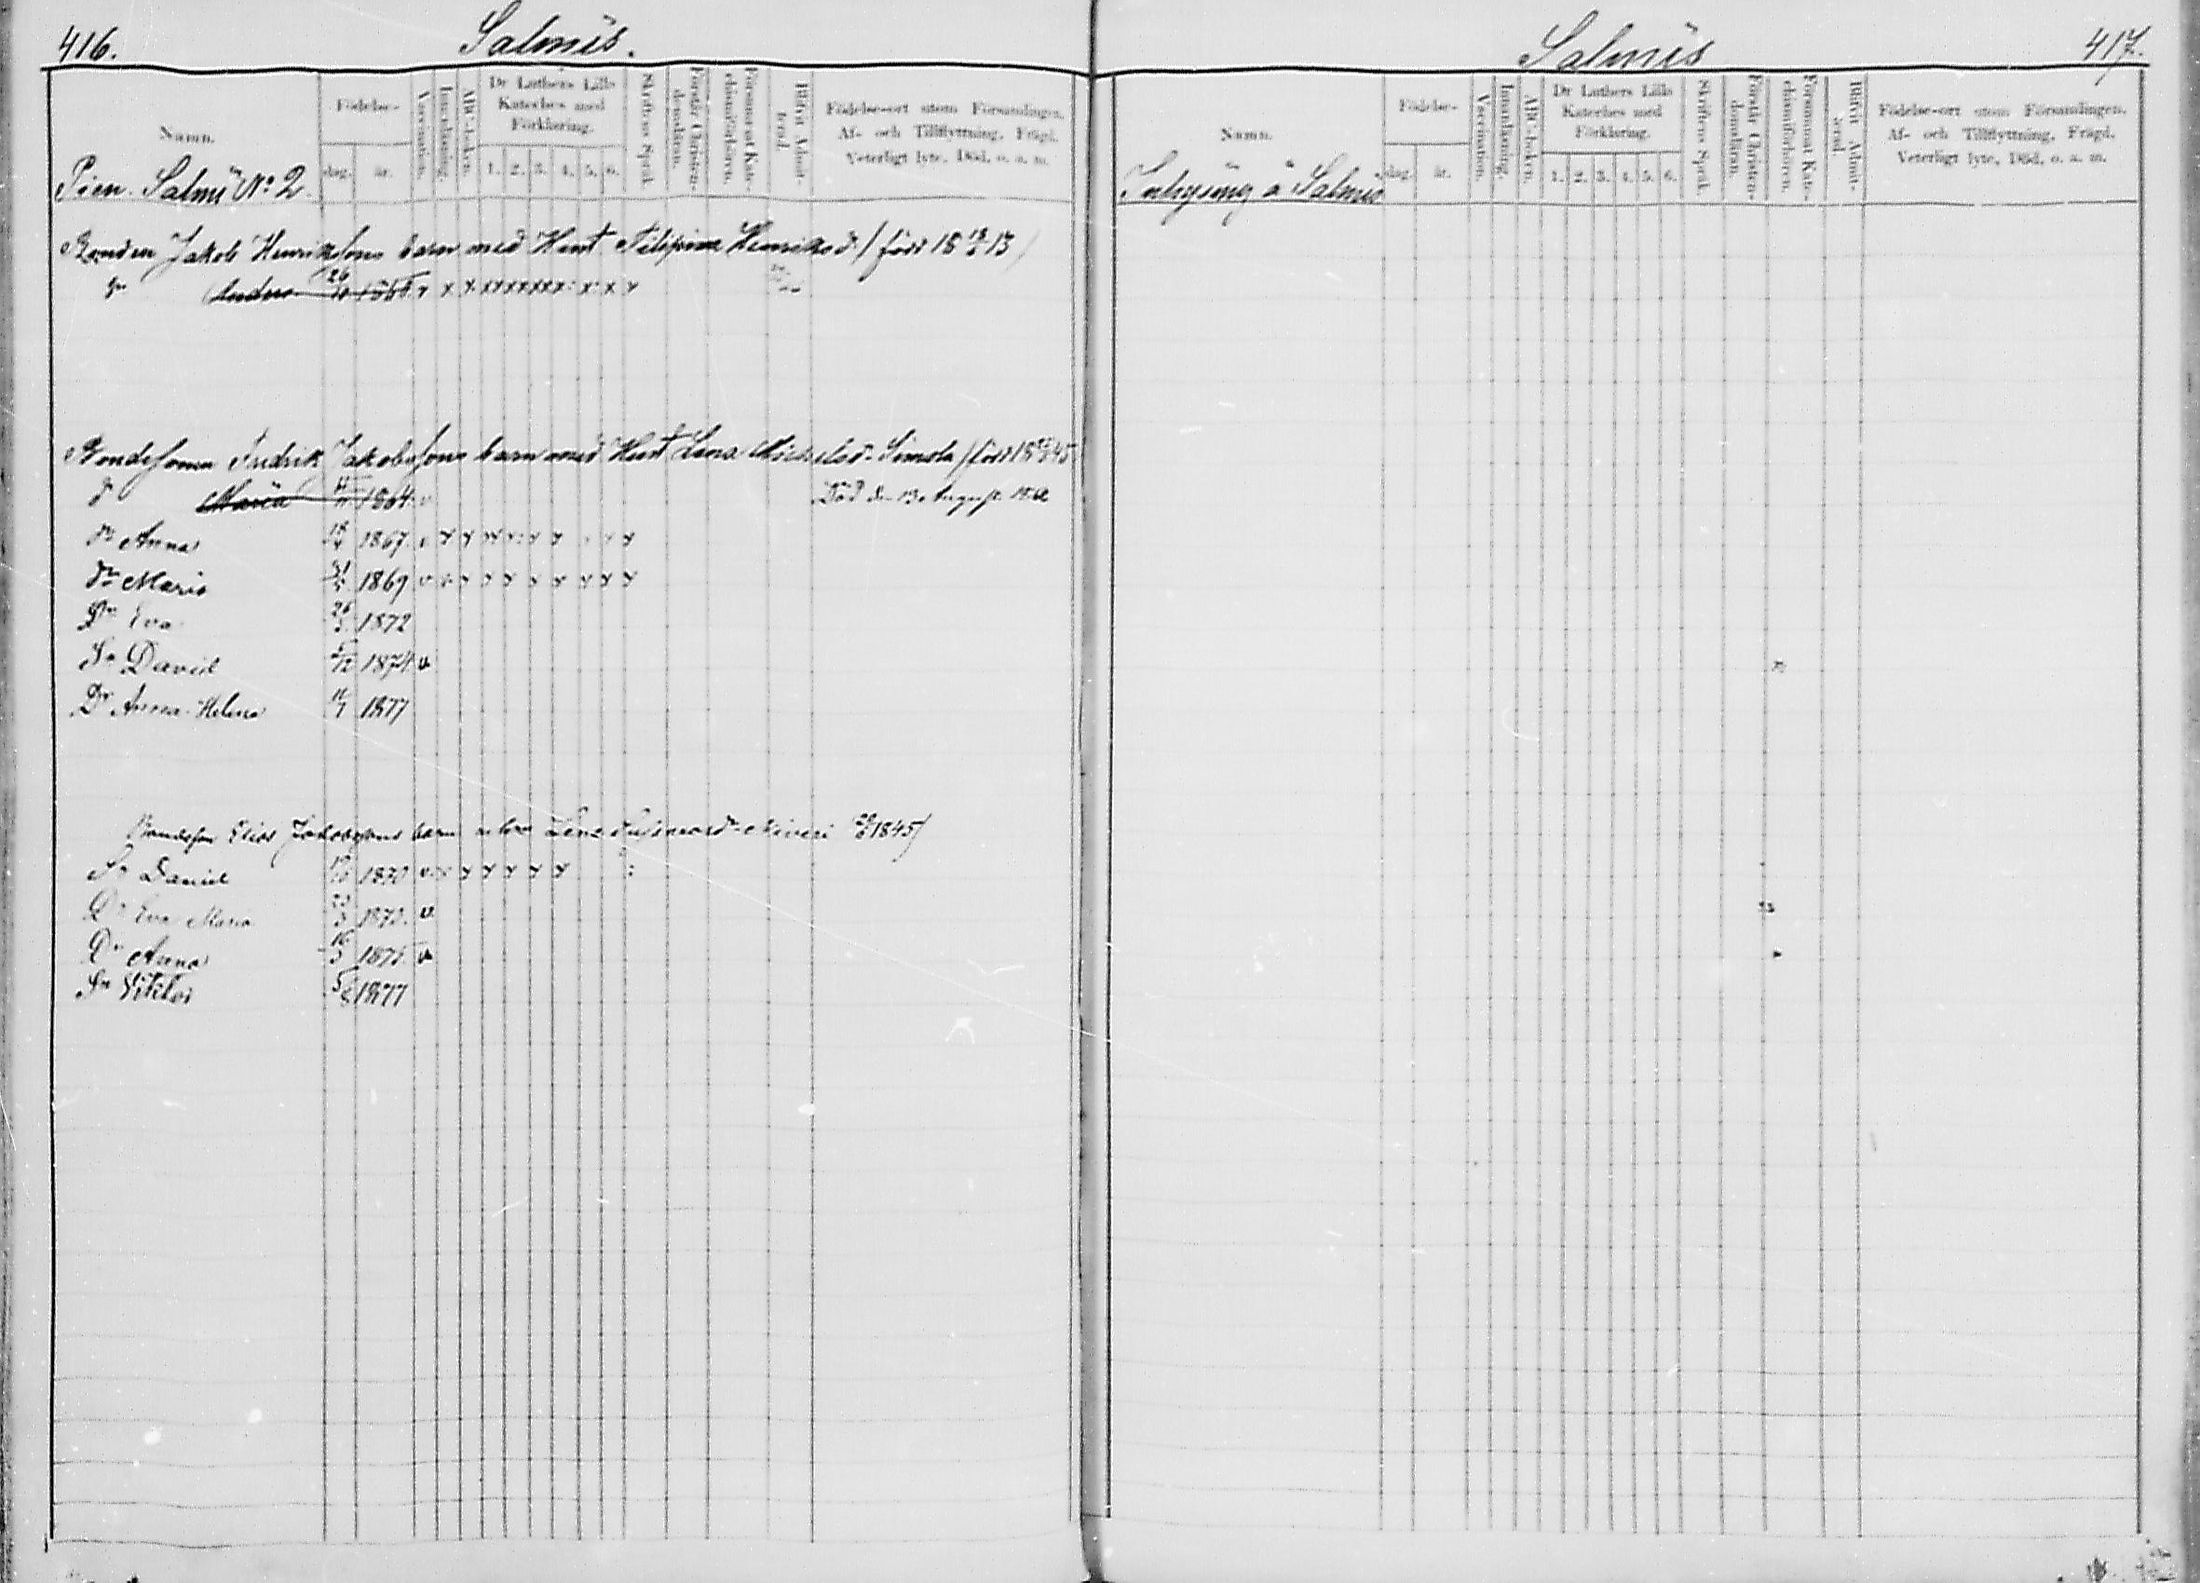 416.
Salmis.
Namn.
Födelse-
dag.
år.
Vaccination.
Innanläsning.
ABC-boken.
Dr Luthers Lilla
Kateches med
Förklaring.
1. 2. 3. 4. 5. 6.
Skriftens Språk.
Förstår Christen-
domsläran.
Försummat Kate-
chismiförhören.
Blifvit Admit-
terad.
Födelse-ort utom Församlingen.
Af- och Tillflyttning, Frägd.
Veterligt lyte, Död, o. a. m.
Pien Salmi No 2.
Bonden Jakob Henrikssons barn med Hust Filippina Henriksd. / född 18 13/
Sn Anders 26
Bondesonen Fredrik Jakobssons barn med Hust Lena Michelsd. Simola / född 18 45
d Maria 1864. Död den 13 August
dr Anna 1867. v x x x x x x x x x
dr Maria 31 1869 v x x x x x x x x x
Dr Eva 26 1872
Sn David 1874 v
Dr Anna Helena 1877
Bondeson Elias Jakobssons barn Lena 1845/
Sn Daniel 1870 v x x x x x x
Dr Eva Maria 23 v
Dr Anna 16/3 1875 v
Sn Viktor 1877
Salmis
417.
Namn.
Födelse-
dag.
år.
Vaccination.
Innanläsning.
ABC-boken.
Dr Luthers Lilla
Kateches med
Förklaring.
1. 2. 3. 4. 5. 6.
Skriftens Språk.
Förstår Christen-
domsläran.
Försummat Kate-
chismiförhören.
Blifvit Admit-
terad.
Födelse-ort utom Församlingen.
Af- och Tillflyttning, Frägd.
Veterligt lyte, Död, o. a. m.
Inhysing å Salmis